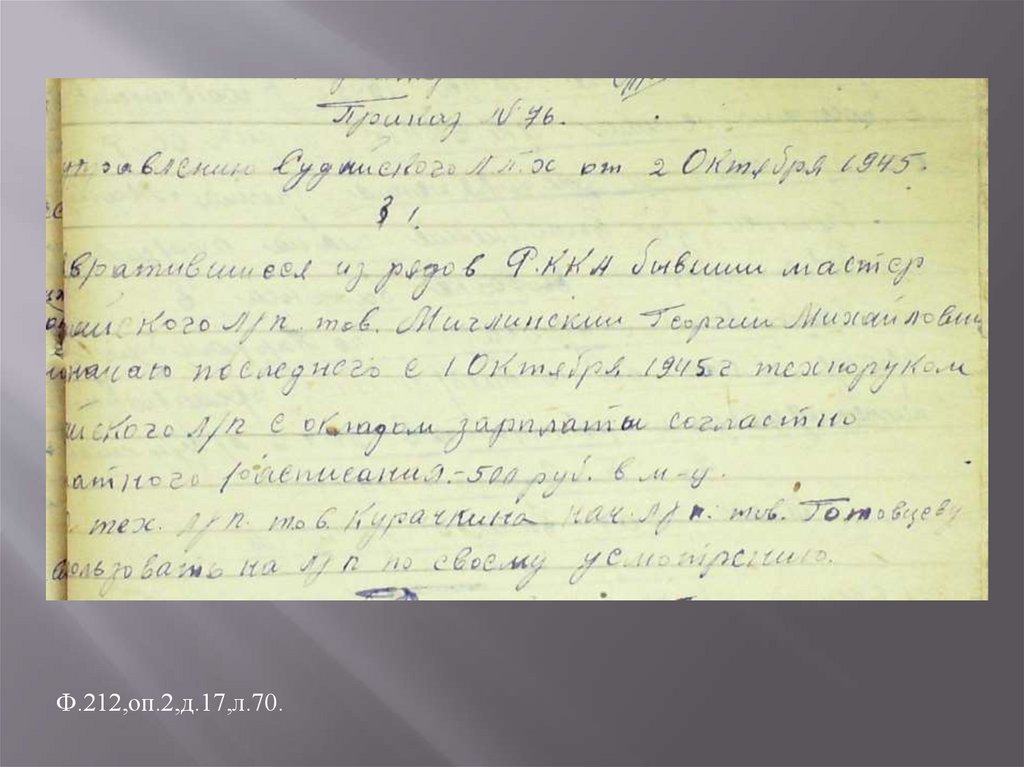 Приказ № 76.
управлению Судайского Л.П.Х от 2 Октября 1945.
§ 1.
вратившиеся из рядов Р.ККА бывший мастер
айского Л/П. тов. Мичлинский Георгий Михайлович
значаю последнего с 1 Октября 1945 г техноруком
йского Л/П с окладом зарплаты согластно
атного расписания.-500 руб. в м-ц.
тех. Л/П. тов. Курачкина нач. Л/П. тов. Готовцеву
пользовать на Л/П по своему усмотрению.
Ф.212,оп.2,д.17,л.70.